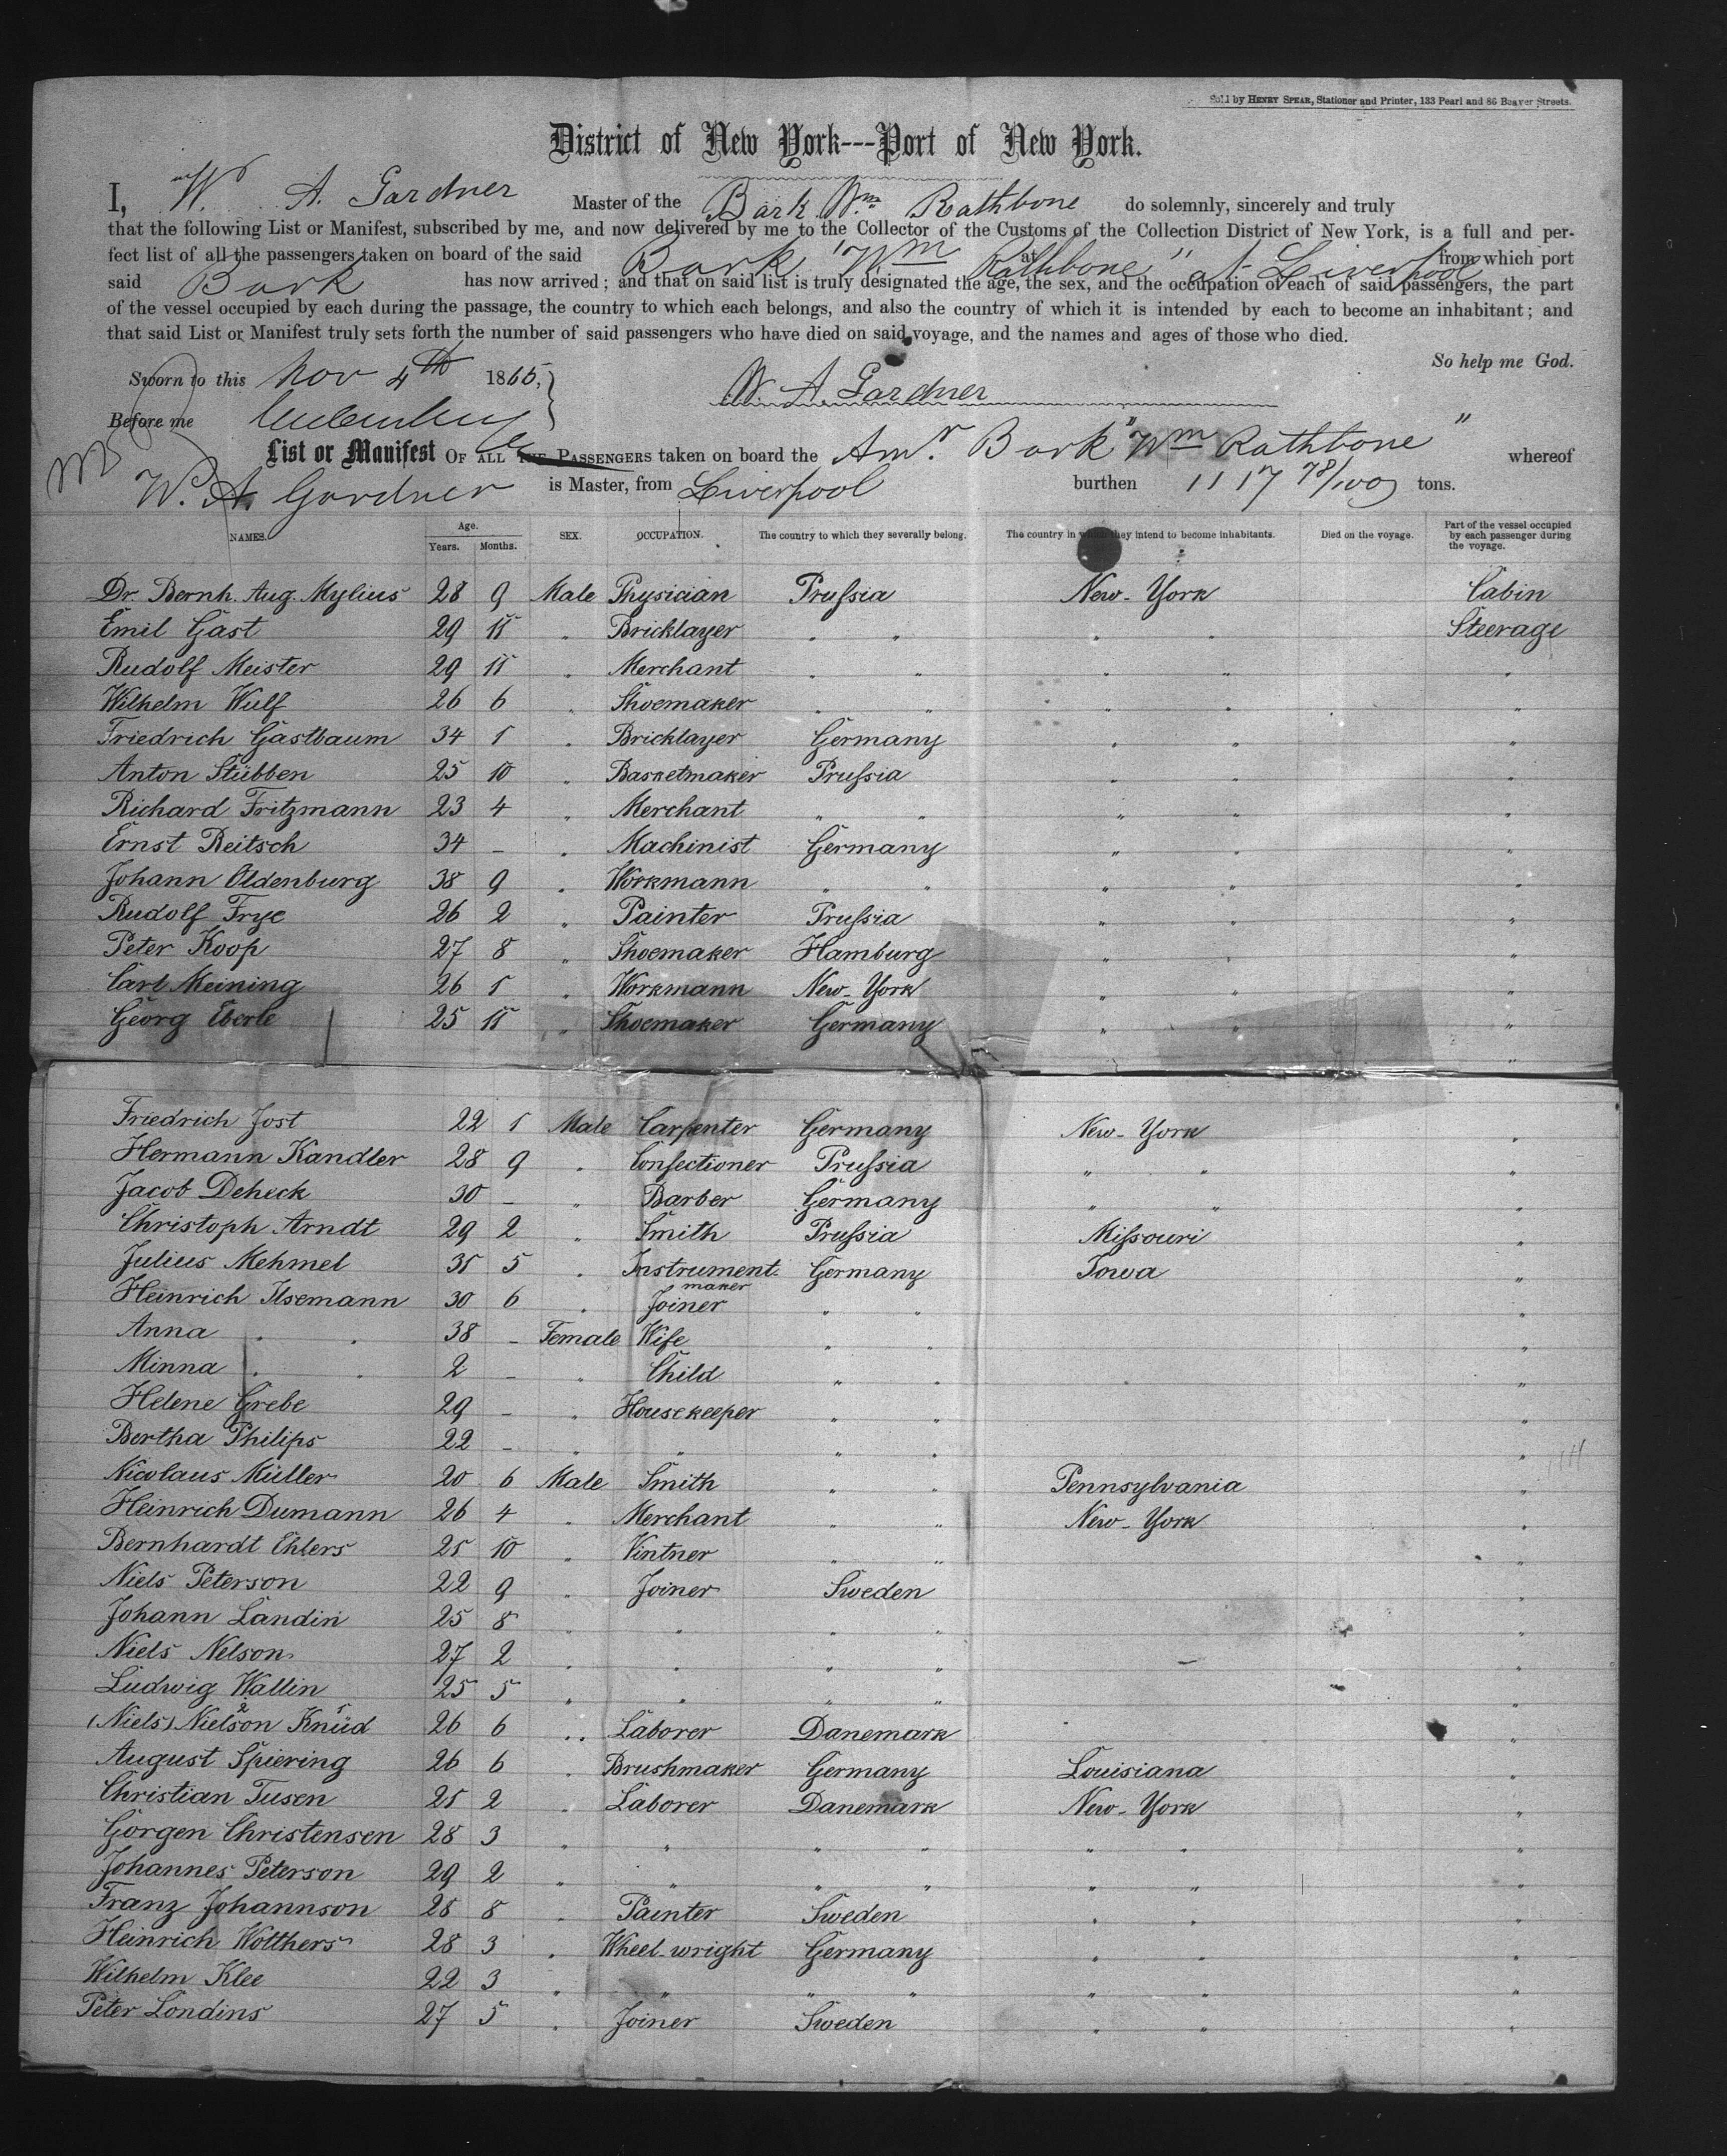 Sold by HENRY SPEAR, Stationer and Printer, 133 Pearl and 86 Beaver Streets.
District of New York---Port of New York.
I, W. A. Gardner Master of the Bark Wm Rathbone do solemnly, sincerely and truly
that the following List or Manifest, subscribed by me, and now delivered by me to the Collector of the Customs of the Collection District of New York, is a full and per-
fect list of all the passengers taken on board of the said Bark "Wm Rathbone" at at Liverpool from which port
said Bark has now arrived; and that on said list is truly designated the age, the sex, and the occupation of each of said passengers, the part
of the vessel occupied by each during the passage, the country to which each belongs, and also the country of which it is intended by each to become an inhabitant; and
that said List or Manifest truly sets forth the number of said passengers who have died on said voyage, and the names and ages of those who died.
So help me God.
Sworn to this Nov 4th 1865,
W. A. Gardner
Before me
List or Manifest OF ALL THE PASSENGERS taken on board the Amr. Bark "Wm Rathbone" whereof
W. A. Gardner is Master, from Liverpool burthen 1117 78/100 tons.
NAMES. Age. Years. Months. SEX. OCCUPATION. The country to which they severally belong. The country in which they intend to become inhabitants. Died on the voyage. Part of the vessel occupied by each passenger during the voyage.
Dr. Bernh. Aug. Mylius 28 9 Male Physician Prussia New-York Cabin
Emil Gast 29 11 " Bricklayer " " " " Steerage
Rudolf Meister 29 11 " Merchant " " " " "
Wilhelm Wulf 26 6 " Shoemaker " " " " "
Friedrich Gastbaum 34 1 " Bricklayer Germany " " "
Anton Stübben 25 10 " Basketmaker Prussia " " "
Richard Fritzmann 23 4 " Merchant " " " " "
Ernst Reitsch 34 - " Machinist Germany " " "
Johann Oldenburg 38 9 " Workmann " " " " "
Rudolf Frye 26 2 " Painter Prussia " " "
Peter Koop 27 8 " Shoemaker Hamburg " " "
Carl Meining 26 1 " Workmann New-York " " "
Georg Eberle 25 11 " Shoemaker Germany " " "
"
Friedrich Jost 22 1 Male Carpenter Germany New-York "
Hermann Kandler 28 9 " Confectioner Prussia " " "
Jacob Deheck 30 - " Barber Germany " " "
Christoph Arndt 29 2 " Smith Prussia Missouri "
Julius Mehmel 31 5 " Instrument-maker Germany Iowa "
Heinrich Ilsemann 30 6 " Joiner " " "
Anna " " 38 - Female Wife " " "
Minna " " 2 - " Child " " "
Helene Grebe 29 - " Housekeeper " " "
Bertha Philips 22 - " " " " "
Nicolaus Müller 20 6 Male Smith " " Pennsylvania "
Heinrich Dumann 26 4 " Merchant " " New-York "
Bernhardt Ehlers 21 10 " Vintner " " "
Niels Peterson 22 9 " Joiner Sweden "
Johann Landin 25 8 " " " " "
Niels Nelson 27 2 " " " " "
Ludwig Wallin 25 5 " " " " "
(Niels) Nielson Knüd 26 6 " Laborer Danemark "
August Spiering 26 6 " Brushmaker Germany Louisiana "
Christian Tusen 21 2 " Laborer Danemark New-York "
Görgen Christensen 28 3 " " " " " " "
Johannes Peterson 29 2 " " " " " " "
Franz Johannson 28 8 " Painter Sweden " " "
Heinrich Wolthers 28 3 " Wheel-wright Germany " " "
Wilhelm Klee 22 3 " " " " " " "
Peter Londins 27 5 " Joiner Sweden " " "